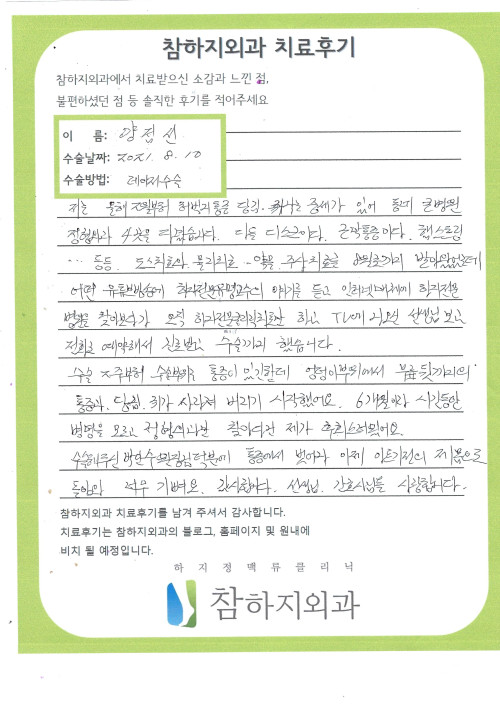 참하지외과 치료후기
참하지외과에서 치료받으신 소감과 느낀 점,
불편하셨던 점 등 솔직한 후기를 적어주세요
이 름: 양점선
수술날짜: 2021. 8. 10
수술방법: 레이저수술
저는 올해 허벅지통증 당김. 증세가 있어 동네 큰병원
정형외과 4곳을 다녔습니다. 다들 디스크이다. 근막통증이다. 햄스트링
… 등등. 도수치료와 물리치료 약물. 주사치료를 받아왔었는데
어떤 유튜브방송에 이야기를 듣고 하지전문
병원을 찾아보다가 오직 하고 TV에 나오신 선생님 보고
전화로 예약해서 진료받고 수술까지 했습니다.
수술 통증이 있긴한데 엉덩이부위에서 무릎뒷까지의
통증과. 당김. 쥐가 사라져 버리기 시작했어요. 6개월이란 시간동안
병명을 모르고 정형외과만 찾아다닌 제가
수술해주신 박인수 원장님 덕분에 통증에서 벗어나 이제 아프기전의 제 몸으로
돌아와 너무 기뻐요. 감사합니다. 선생님. 간호사님들 사랑합니다.
참하지외과 치료후기를 남겨 주셔서 감사합니다.
치료후기는 참하지외과의 블로그, 홈페이지 및 원내에
비치 될 예정입니다.
하지정맥류클리닉
참하지외과